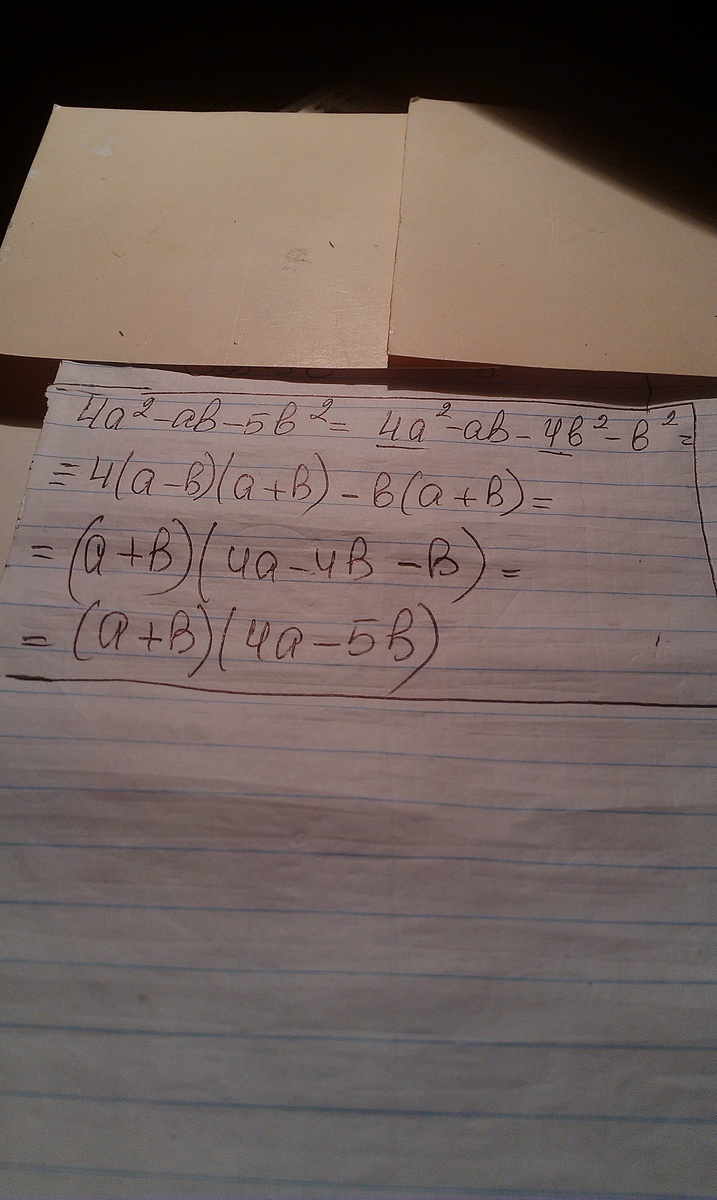 4a²-ab-5b²= 4a²-ab-4b²-b²=
=4(a-b)(a+b)-b(a+b)=
=(a+b)(4a-4b-b)=
=(a+b)(4a-5b)